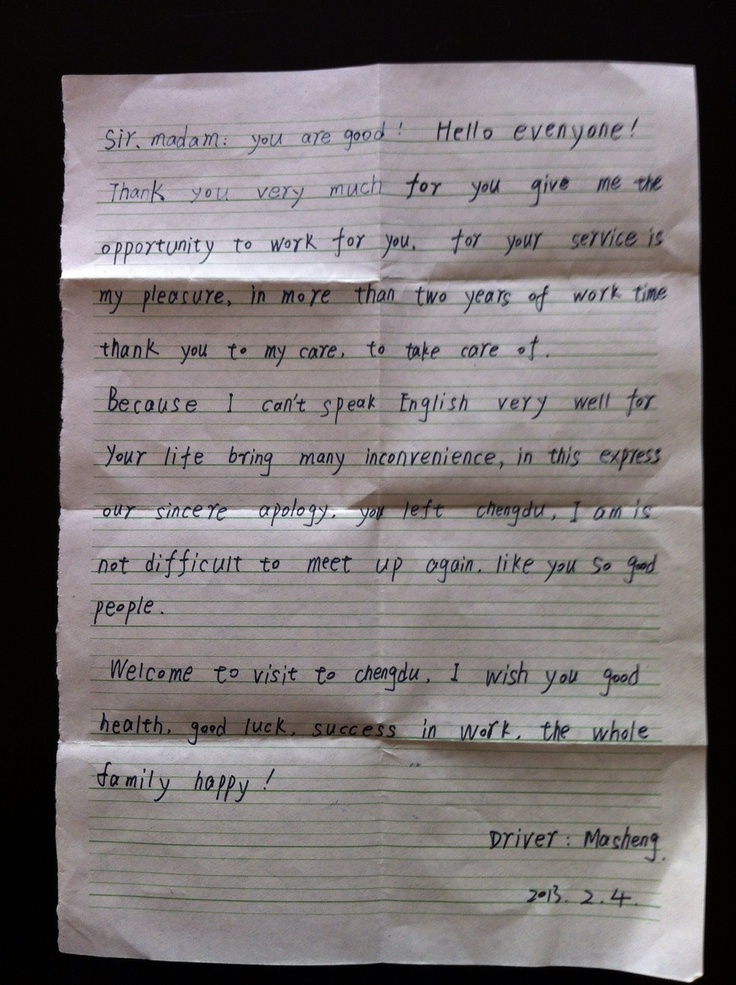 Sir. madam: you are good! Hello evenyone!
Thank you very much for you give me the
opportunity to work for you. for your service is
my pleasure, in more than two years of work time
thank you to my care. to take care of.
Because I can't speak English very well for
Your life bring many inconvenience, in this express
our sincere apology. you left chengdu, I am is
not difficult to meet up again. like you so good
people.
Welcome to visit to chengdu, I wish you good
health, good luck, success in work, the whole
family happy!
Driver: Masheng.
2013. 2. 4.